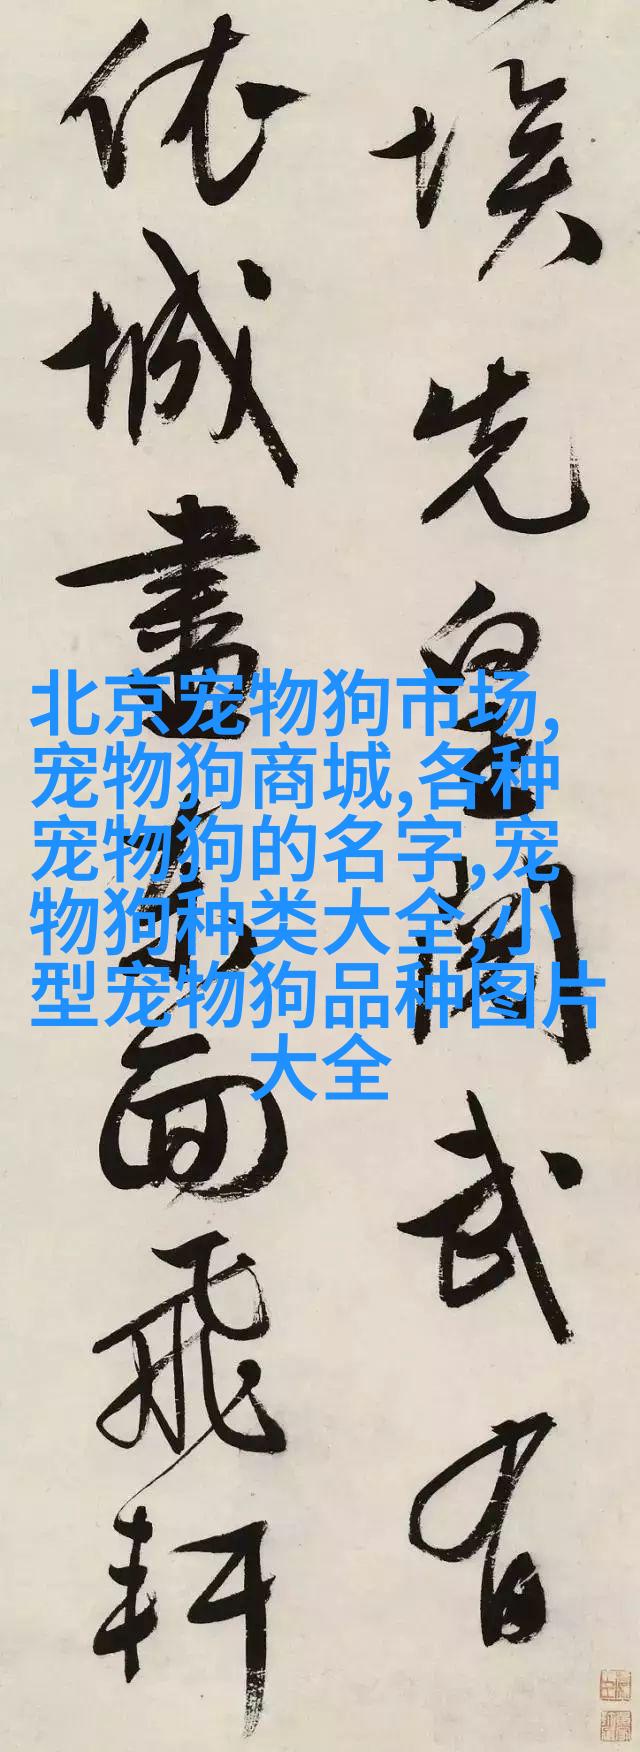 埃先皇閱武有
依城盡東面飛軒
北京宠物狗市场,
宠物狗商城,各种
宠物狗的名字,宠
物狗种类大全,小
型宠物狗品种图片
大全